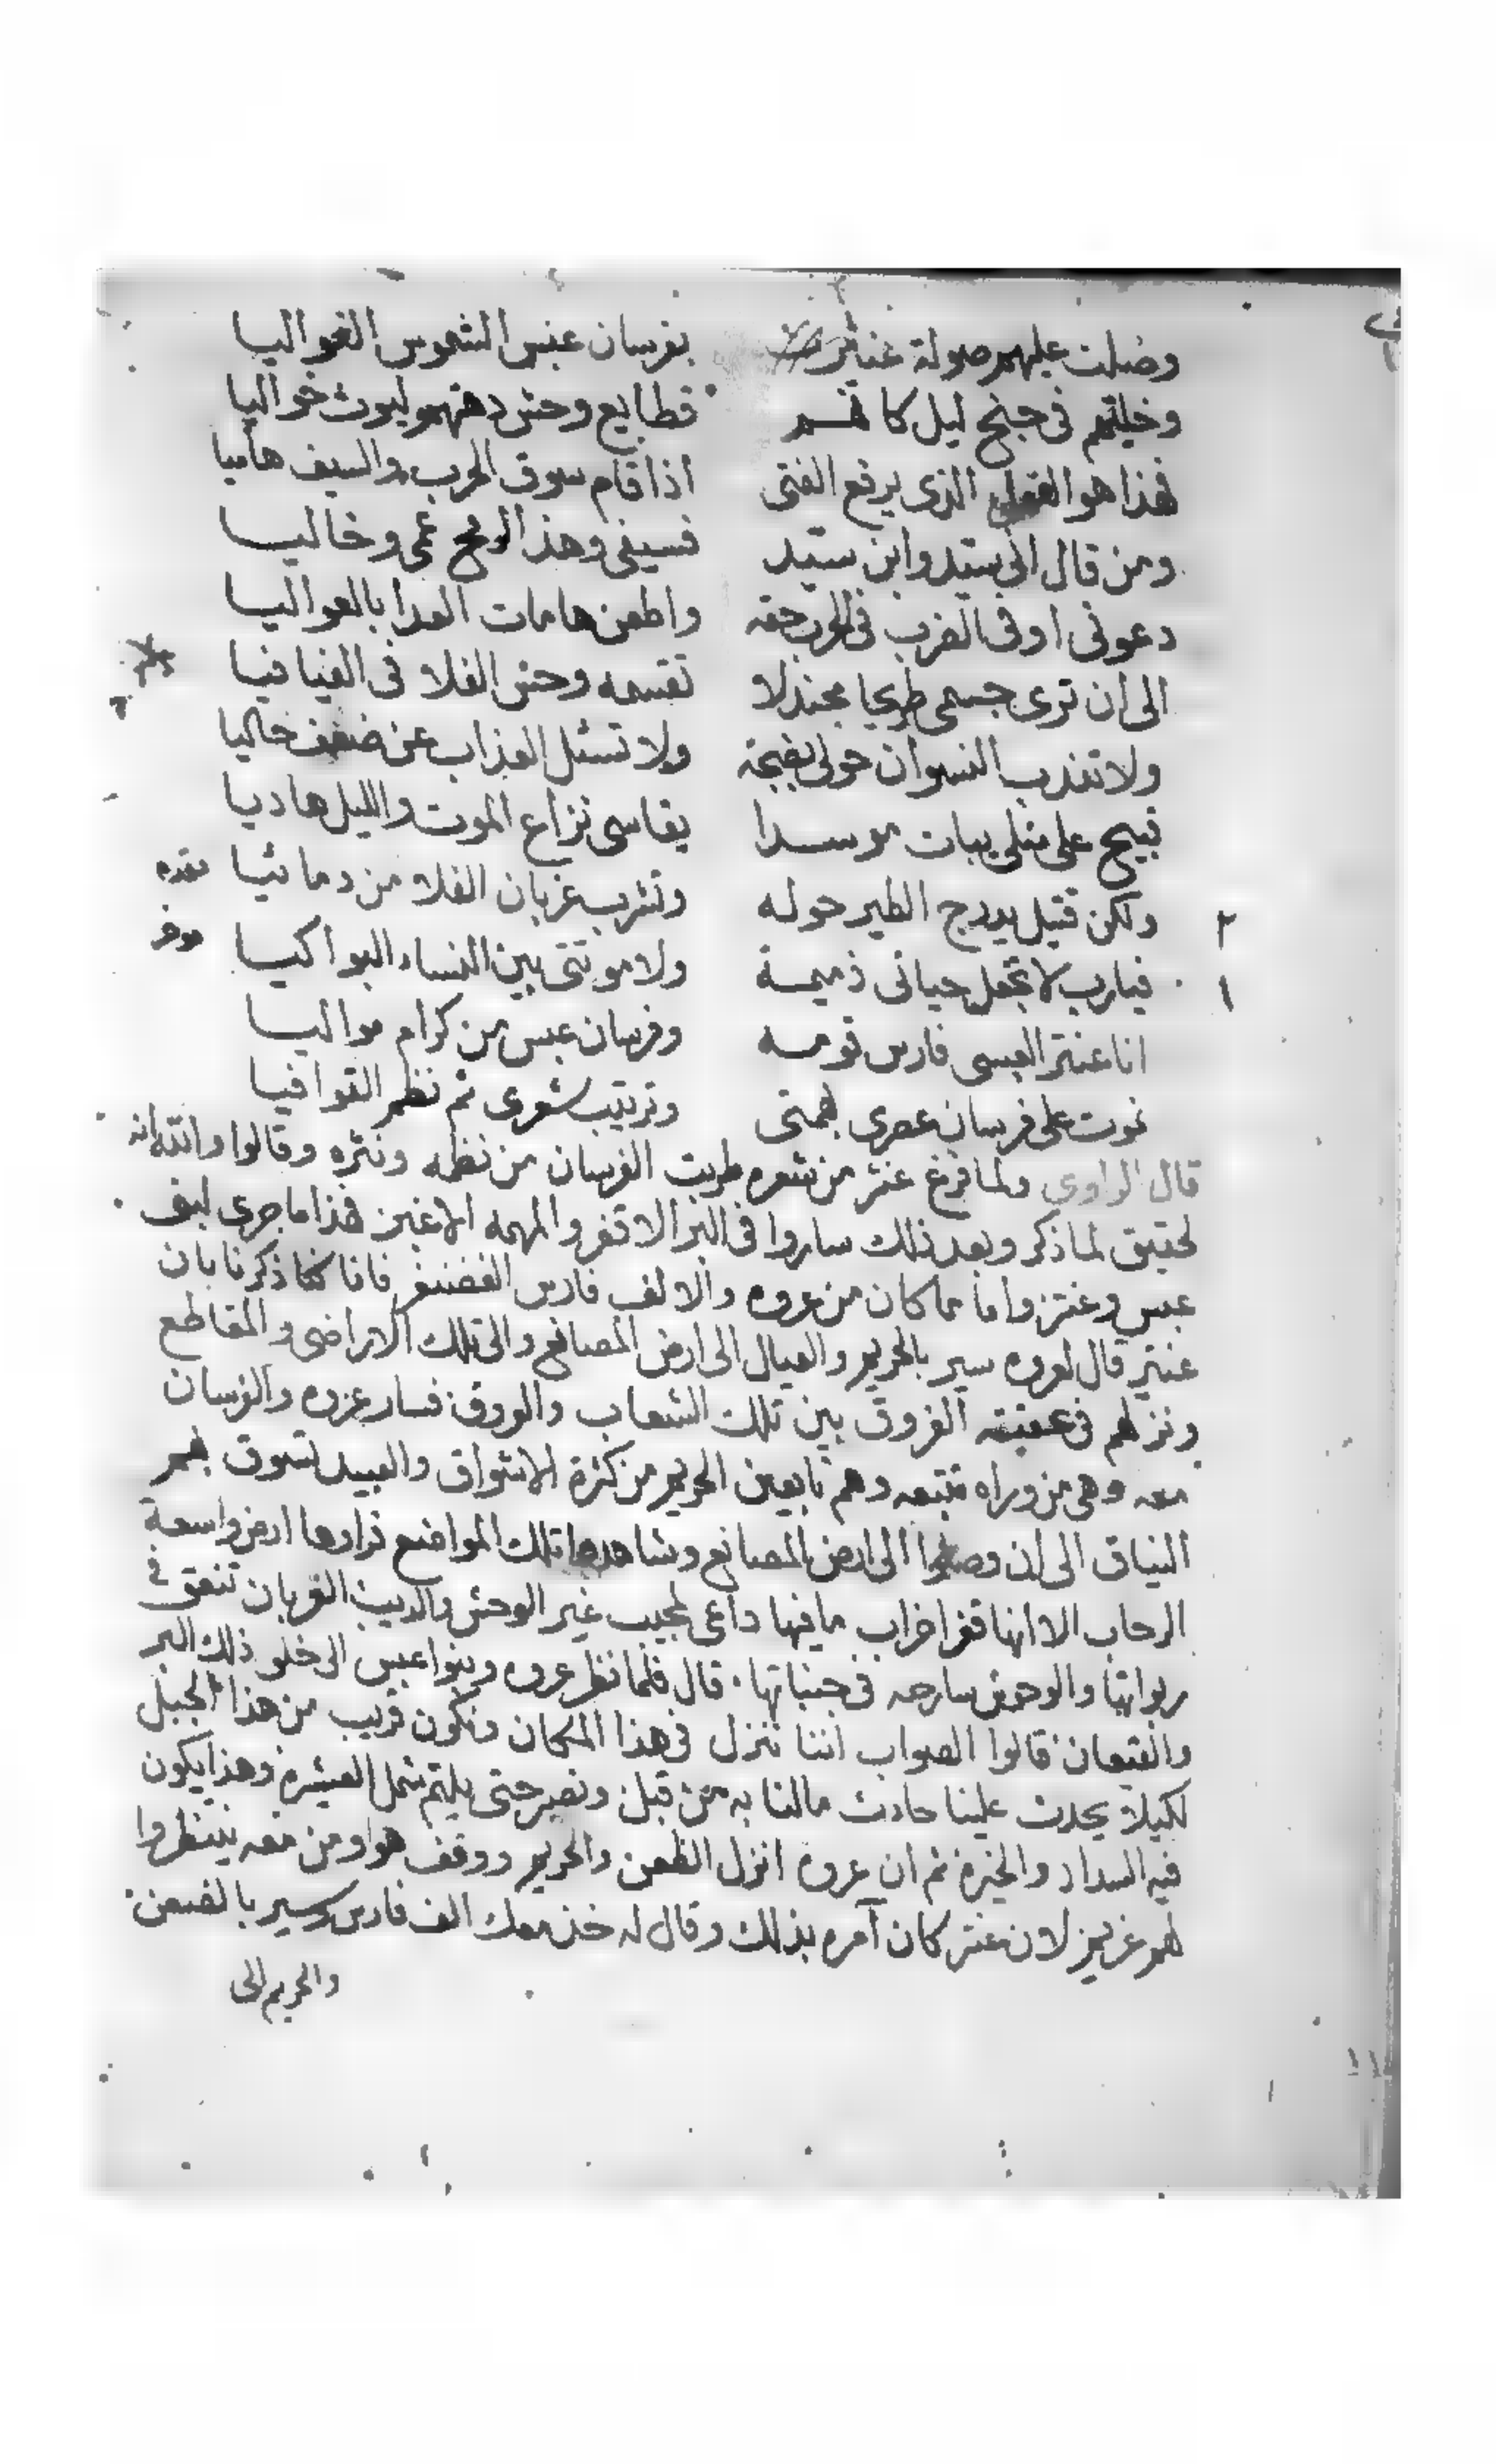 وصلت عليهم صولة عنترية بفرسان عبس الشموس الغواليا
وخيلتهم في جنح ليل كانهم قطايع وحش دهتهمو ليوث خواليا
فهذا هو الفعل الذي يرفع الفتى اذا قام سوق الحرب والسيف هاميا
ومن قال اني سيد وابن سيد فسيفي وهذا الرمح عمي وخاليا
دعوني اوفي الضرب في الحرب حقه واطعن هامات العدا بالعواليا
الى ان ترى جسمي طريحا مجندلا تقسمه وحش الفلا في الفيافيا
ولا تندب النسوان حولي بضجة ولا تسئل العذاب عن ضعف حاليا
قبيح على مثلي يبات موسدا يقاسي نزاع الموت والليل هاديا
ولكن قتيل يدرج الطير حوله وتشرب غربان الفلا من دمائيا
فيارب لا تجعل حياتي ذميمة ولا موتتي بين النساء البواكيا
انا عنتر العبسي فارس قومه وفرسان عبس من كرام مواليا
نموت على فرسان عصري بهمتي وترتيب شعري ثم نظم القوافيا
قال الراوي ولما فرغ عنتر من شعره طربت الفرسان من نظمه ونثره وقالوا والله انه
لحقيق لما ذكر وبعد ذلك ساروا في البر الاقفر والمهمه الاغبر هذا ما جرى لبنى
عبس وعنتر واما ما كان من عروه والالف فارس الغضنفر فاننا كنا ذكرنا بان
عنتر قال لعروه سير بالحريم والعيال الى ارض المصانع والى تلك الاراضي والمقاطع
ونزلهم في عقيقه الفروق بين تلك الشعاب والوروق فسار عروه والفرسان
معه وهي من وراه تتبعه وهم تابعين الحريم من كثرة الاشواق والعبيد تسوق بهم
النياق الى ان وصلوا الى ارض المصانع وشاهدوا تلك المواضع فراوها ارض واسعة
الرحاب الا انها قفرا خراب ما فيها داعي لمجيب غير الوحش والديب الغربان تنعق في
ربواتها والوحوش سارحه في جنباتها قال فلما نظر عروه وبنوا عبس الى خلو ذلك البر
والقيعان قالوا الصواب اننا ننزل في هذا المكان ونكون قريب من هذا الجبل
لكيلا يحدث علينا حادث مالنا به من قبل ونصبر حتى يلتم شمل العشيرة وهذا يكون
فيه السداد والخيرة ثم ان عروة انزل الظعن والحريم ووقف هوا ومن معه ينتظروا
لهم غريم لان عنتر كان آمره بذلك وقال له خذ معك الف فارس وسير بالضعن
والحريم الى